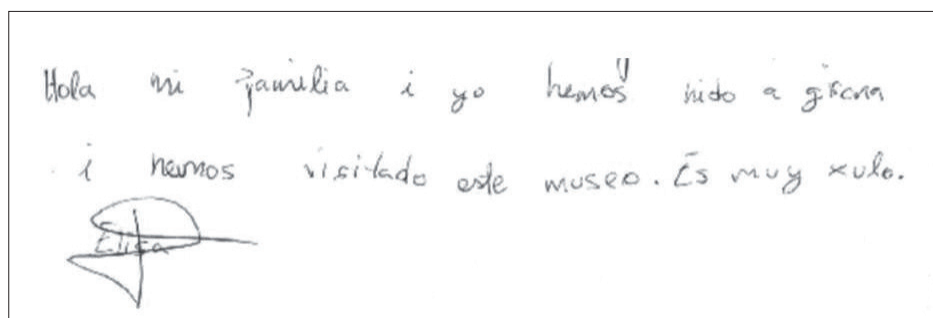 Hola mi familia i yo hemos nido a girona
i hemos visitado este museo. Es muy xulo.
Elisa